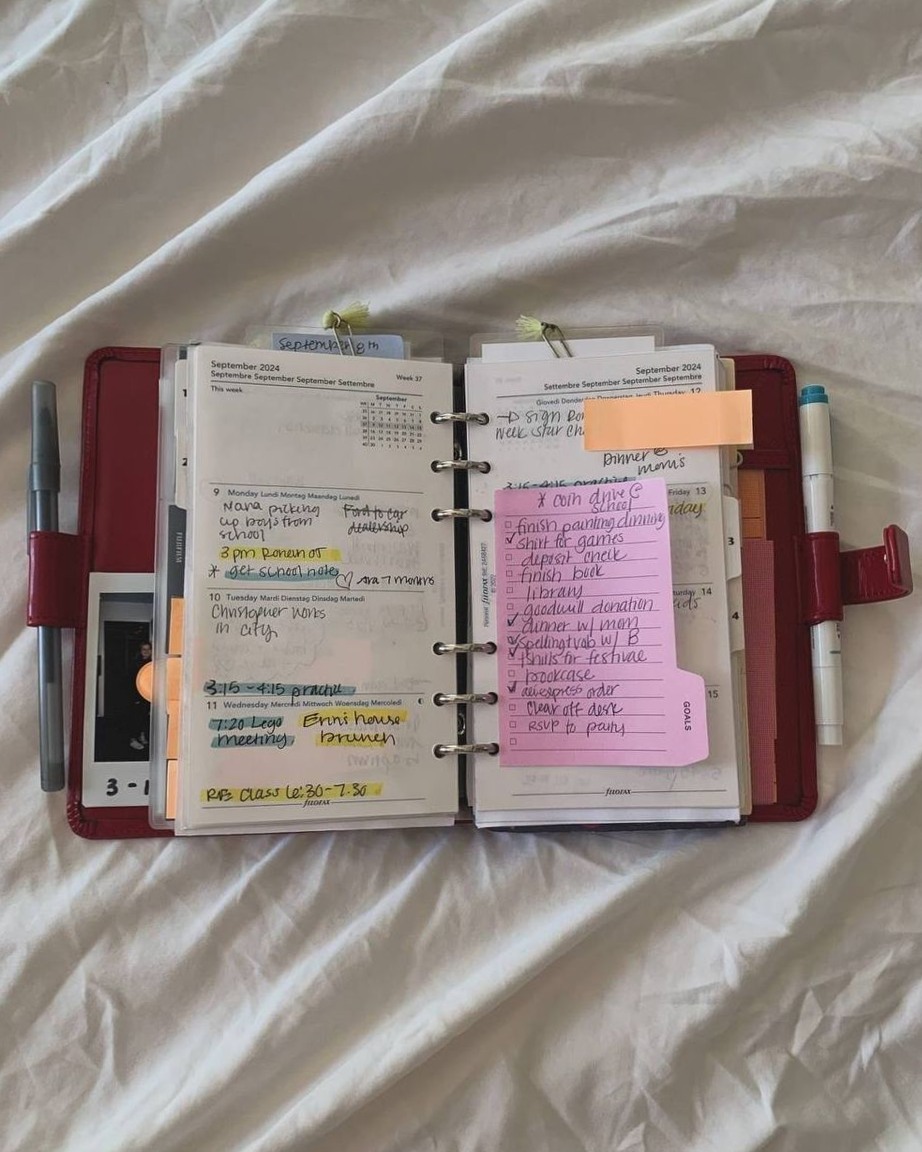 September 8th
September 2024
Septembre September September Settembre
Week 37
This week
September
9 Monday Lundi Montag Maandag Lunedì
Nana picking
up boys from
school
Ford to car
dealership
3pm Ronan OT
* get school note
♡ Ara 7 months
10 Tuesday Mardi Dienstag Dinsdag Martedì
Christopher works
in city
3:15 - 4:15 practice
11 Wednesday Mercredi Mittwoch Woensdag Mercoledì
7:20 Lego
meeting
Erin house
brunch
Class 6:30-7:30
filofax
September 2024
Settembre September September Septiembre
Giovedì Donderdag Donnerstag Jeudi Thursday 12
sign
week star
Dinner @
mom's
3:15-4:15 practice
Friday 13
14
15
* coin drive @
school
finish painting dining
shirt for games
deposit check
finish book
library
goodwill donation
dinner w/ mom
spelling vocab w/ B
shirts for festival
bookcase
aliexpress order
clear off desk
RSVP to party
GOALS
filofax
filofax
3
4
1
2
3 -